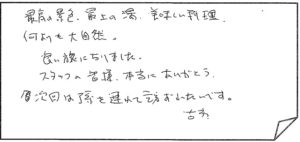 最高の景色、最上の湯、美味しい料理、
何よりも大自然。
良い旅になりました。
スタッフの皆様、本当にありがとう。
次回は孫を連れて訪れたいです。